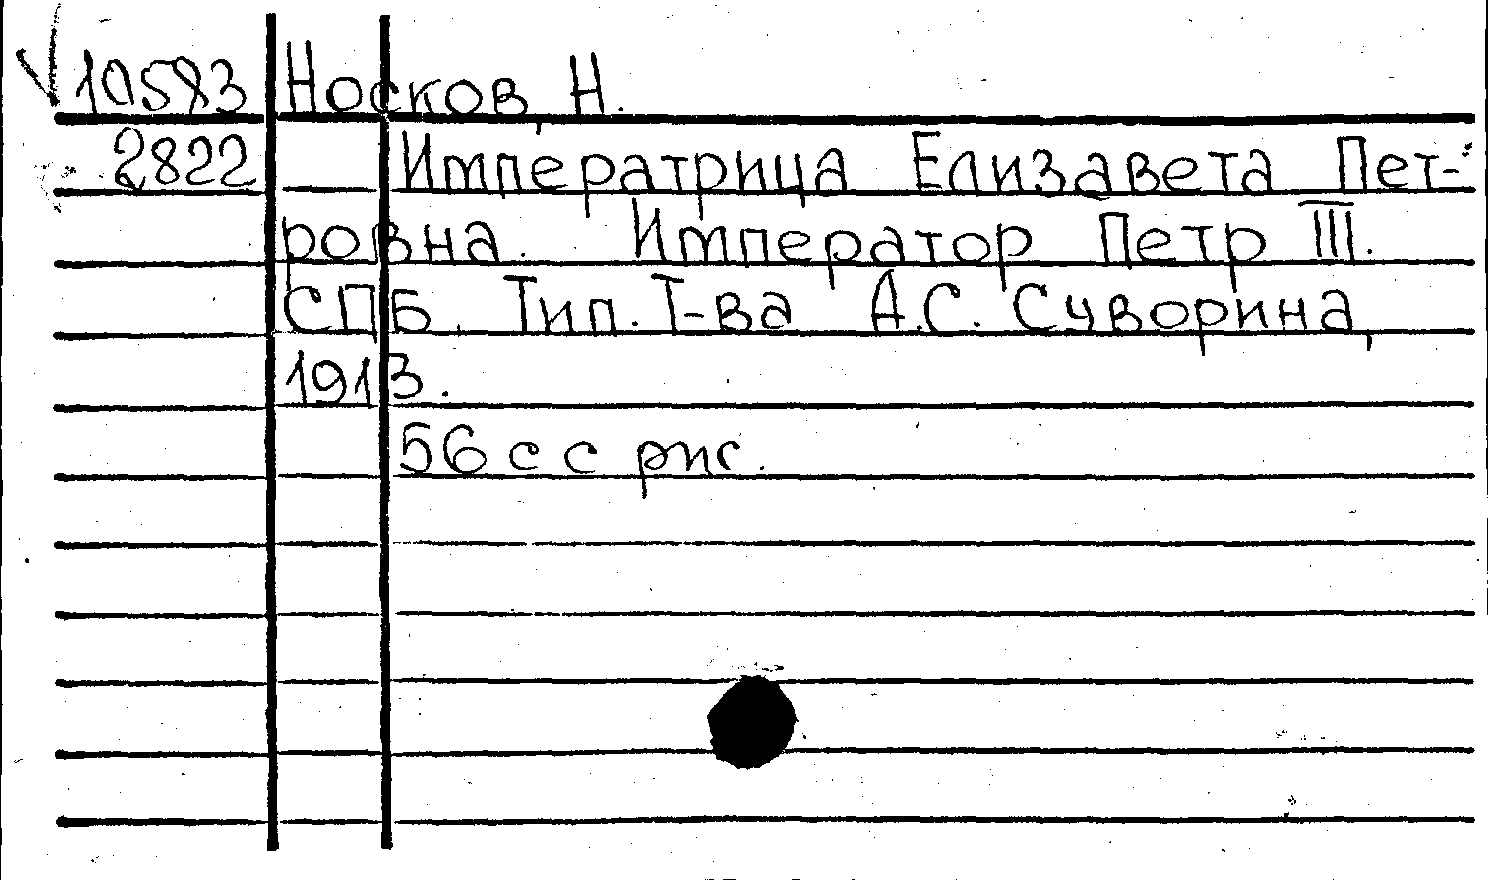 10583 Носков, Н.
2822 Императрица Елизавета Пет-
ровна. Император Петр III.
СПБ, Тип. Т-ва А.С. Суворина,
1913.
56 с с рис.